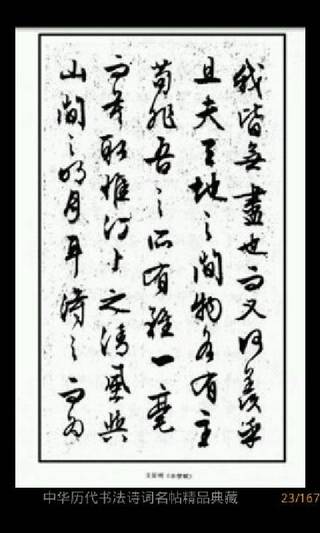 我皆無盡也而又何羨乎
且夫天地之間物各有主
苟非吾之所有雖一毫
而莫取惟江上之清風與
山間之明月耳得之而為
文徵明《赤壁賦》
中华历代书法诗词名帖精品典藏
23/167